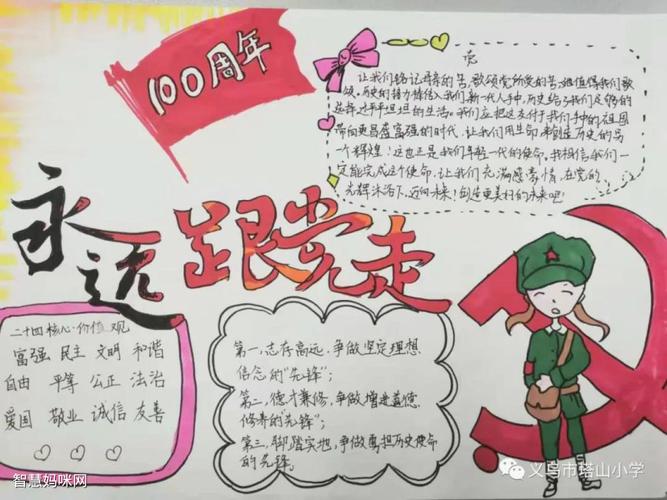 100周年
永远跟党走
党
让我们铭记
历史的接力棒传入我们新一代人手中,历史给予我们足够的
选择过平平坦坦的生活。我们应把这支付于我们手中的祖国
带向更昌盛富强的时代,让我们用生命来创造历史的另
一个辉煌!这也正是我们年轻一代的使命,我相信我们一
定能完成这个使命,让我们充满感豪情,在党的
光辉沐浴下,迈向未来!创造更美好的未来吧!
二十四核心·价值观
富强 民主 文明 和谐
自由 平等 公正 法治
爱国 敬业 诚信 友善
第一,志存高远,争做坚定理想
信念的“先锋”;
第二,德才兼修,争做增进道德
修养的“先锋”;
第三,脚踏实地,争做勇担历史使命
的先锋。
智慧妈咪网
义乌市塔山小学